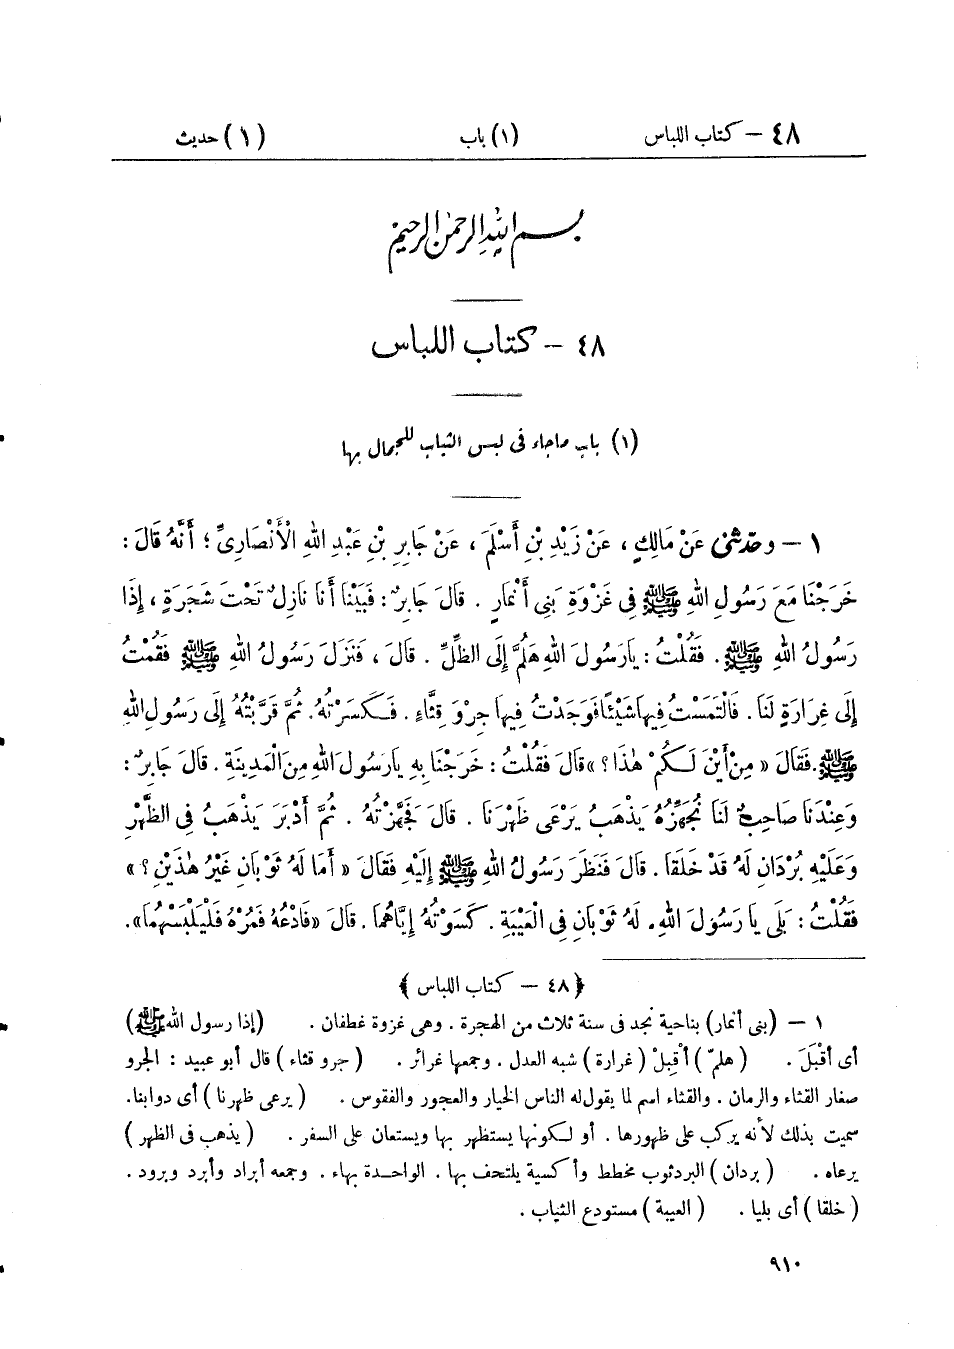 ٤٨ – كتاب اللباس (١) باب (١) حديث
بسم الله الرحمن الرحيم
٤٨ – كتاب اللباس
(١) باب ماجاء فى لبس الثياب للجمال بها
١ – وحدّثنى عَنْ مَالِكٍ ، عَنْ زَيْدِ بْنِ أَسْلَمَ ، عَنْ جَابِرِ بْنِ عَبْدِ اللهِ الْأَنْصَارِىِّ ؛ أَنَّهُ قَالَ :
خَرَجْنَا مَعَ رَسُولِ اللهِ ﷺ فِى غَزْوَةِ بَنِى أَنْمَارٍ . قَالَ جَابِرٌ : فَبَيْنَا أَنَا نَازِلٌ تَحْتَ شَجَرَةٍ ، إِذَا
رَسُولُ اللهِ ﷺ . فَقُلْتُ : يَارَسُولَ اللهِ هَلُمَّ إِلَى الظِّلِّ . قَالَ ، فَنَزَلَ رَسُولُ اللهِ ﷺ فَقُمْتُ
إِلَى غِرَارَةٍ لَنَا . فَالْتَمَسْتُ فِيهَا شَيْئًا فَوَجَدْتُ فِيهَا جِرْوَ قِثَّاءٍ . فَكَسَرْتُهُ . ثُمَّ قَرَّبْتُهُ إِلَى رَسُولِ اللهِ
ﷺ . فَقَالَ « مِنْ أَيْنَ لَكُمْ هٰذَا ؟ » قَالَ فَقُلْتُ : خَرَجْنَا بِهِ يَارَسُولَ اللهِ مِنَ الْمَدِينَةِ . قَالَ جَابِرٌ :
وَعِنْدَنَا صَاحِبٌ لَنَا نُجَهِّزُهُ يَذْهَبُ يَرْعَى ظَهْرَنَا . قَالَ فَجَهَّزْتُهُ . ثُمَّ أَدْبَرَ يَذْهَبُ فِى الظَّهْرِ
وَعَلَيْهِ بُرْدَانِ لَهُ قَدْ خَلَقَا . قَالَ فَنَظَرَ رَسُولُ اللهِ ﷺ إِلَيْهِ فَقَالَ « أَمَا لَهُ ثَوْبَانِ غَيْرُ هٰذَيْنِ ؟ »
فَقُلْتُ : بَلَى يَا رَسُولَ اللهِ . لَهُ ثَوْبَانِ فِى الْعَيْبَةِ . كَسَوْتُهُ إِيَّاهُمَا . قَالَ « فَادْعُهُ فَمُرْهُ فَلْيَلْبَسْهُمَا » .
﴿ ٤٨ – كتاب اللباس ﴾
١ – (بنى أنمار) بناحية نجد فى سنة ثلاث من الهجرة . وهى غزوة غطفان . (إذا رسول الله ﷺ)
أى أقْبَلَ . (هلمّ) أقْبِلْ (غرارة) شبه العدل . وجمعها غرائر . (جرو قثاء) قال أبو عبيد : الجرو
صغار القثاء والرمان . والقثاء اسم لما يقوله الناس الخيار والعجور والفقوس . (يرعى ظهرنا) أى دوابنا .
سميت بذلك لأنه يركب على ظهورها . أو لكونها يستظهر بها ويستعان على السفر . (يذهب فى الظهر)
يرعاه . (بردان) البرد ثوب مخطط وأكسية يلتحف بها . الواحدة بهاء . وجمعه أبراد وأبرد وبرود .
(خلقا) أى بليا . (العيبة) مستودع الثياب .
٩١٠